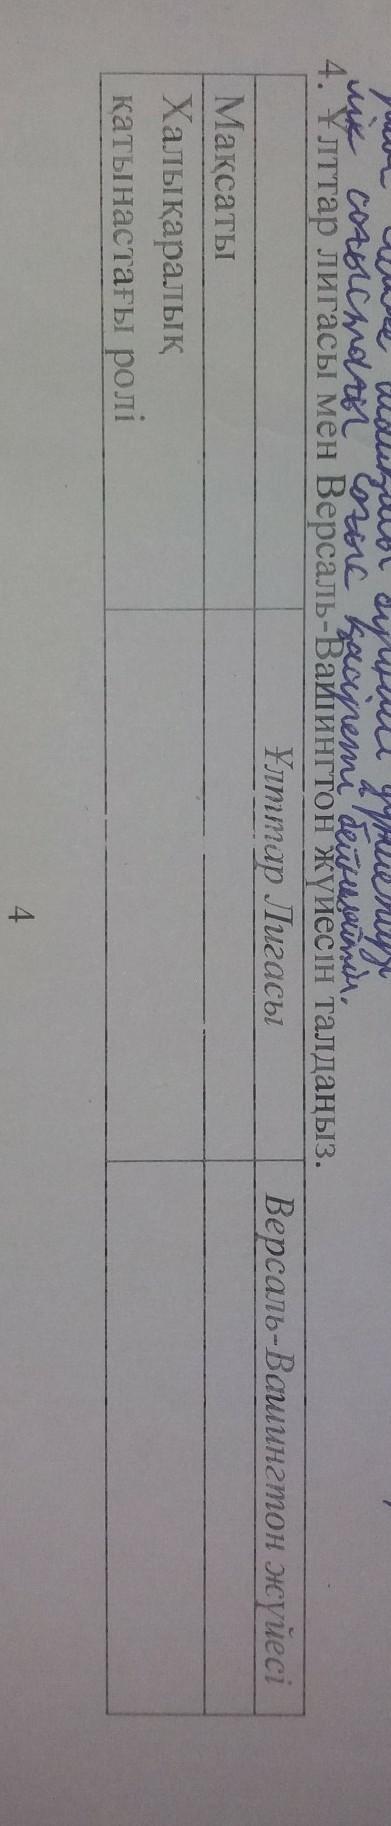 соғыстағы соғыс қасіреті бейнелейтін.
4. Ұлттар лигасы мен Версаль-Вашингтон жүйесін талдаңыз.
Ұлттар Лигасы Версаль-Вашингтон жүйесі
Мақсаты
Халықаралық
қатынастағы ролі
4